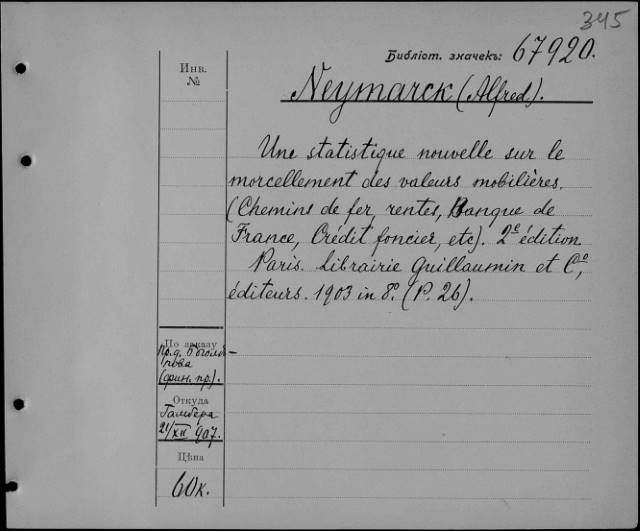 345
Библіот. значекъ: 67920.
Инв.
№
Neymarck (Alfred).
Une statistique nouvelle sur le
morcellement des valeurs mobilières.
(Chemins de fer, rentes, Banque de
France, Crédit foncier, etc). 2e édition
Paris. Librairie Guillaumin et Co,
éditeurs. 1903 in 8o. (P. 26).
По заказу
Пр.д. Боголѣ-
пова
(фин. пр.).
Откуда
Гамбера
21/XII 907.
Цѣна
60к.